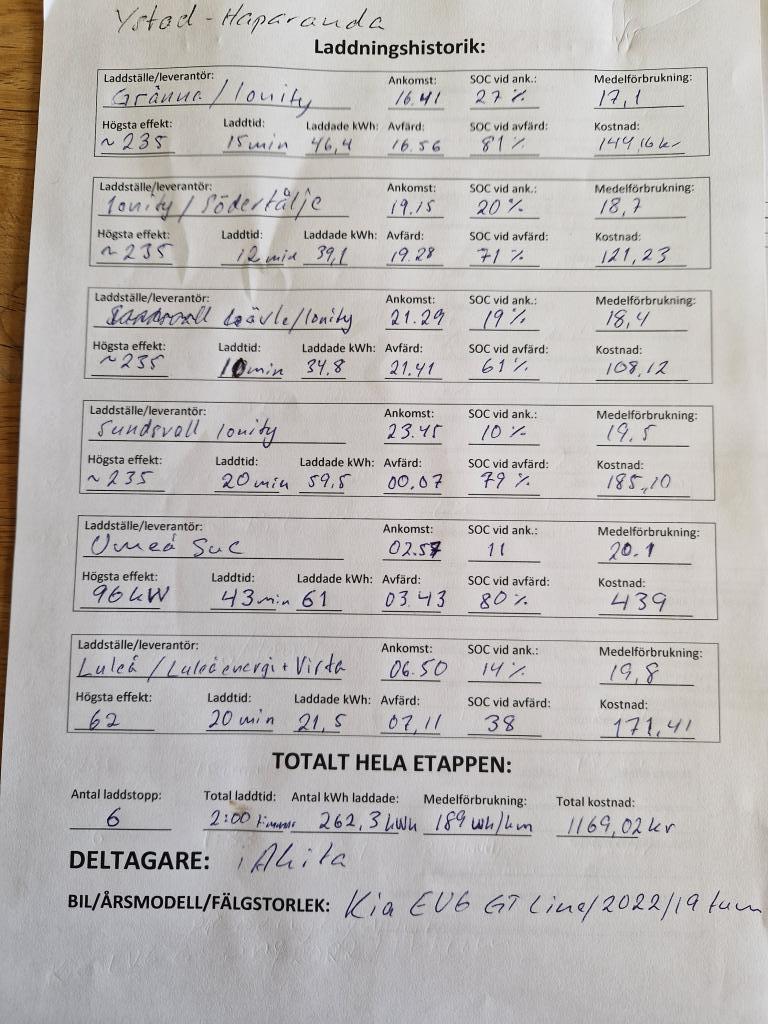 Ystad - Haparanda
Laddningshistorik:
Laddställe/leverantör: Ankomst: SOC vid ank.: Medelförbrukning:
Gränna / Ionity 16.41 27 % 17,1
Högsta effekt: Laddtid: Laddade kWh: Avfärd: SOC vid avfärd: Kostnad:
~ 235 15 min 46,4 16.56 81 % 144,16 kr
Laddställe/leverantör: Ankomst: SOC vid ank.: Medelförbrukning:
Ionity / Södertälje 19.15 20 % 18,7
Högsta effekt: Laddtid: Laddade kWh: Avfärd: SOC vid avfärd: Kostnad:
~ 235 12 min 39,1 19.28 71 % 121,23
Laddställe/leverantör: Ankomst: SOC vid ank.: Medelförbrukning:
Gävle/Ionity 21.29 19 % 18,4
Högsta effekt: Laddtid: Laddade kWh: Avfärd: SOC vid avfärd: Kostnad:
~ 235 10 min 34.8 21.41 61 % 108,12
Laddställe/leverantör: Ankomst: SOC vid ank.: Medelförbrukning:
Sundsvall Ionity 23.45 10 % 19,5
Högsta effekt: Laddtid: Laddade kWh: Avfärd: SOC vid avfärd: Kostnad:
~ 235 20 min 59,5 00.07 79 % 185,10
Laddställe/leverantör: Ankomst: SOC vid ank.: Medelförbrukning:
Umeå SuC 02.57 11 20.1
Högsta effekt: Laddtid: Laddade kWh: Avfärd: SOC vid avfärd: Kostnad:
96 kW 43 min 61 03.43 80 % 439
Laddställe/leverantör: Ankomst: SOC vid ank.: Medelförbrukning:
Luleå / Luleåenergi + Virta 06.50 14 % 19,8
Högsta effekt: Laddtid: Laddade kWh: Avfärd: SOC vid avfärd: Kostnad:
62 20 min 21,5 07,11 38 171,41
TOTALT HELA ETAPPEN:
Antal laddstopp: Total laddtid: Antal kWh laddade: Medelförbrukning: Total kostnad:
6 2:00 timmar 262,3 kWh 189 Wh/km 1169,02 kr
DELTAGARE: Akita
BIL/ÅRSMODELL/FÄLGSTORLEK: Kia EV6 GT Line/2022/19 tum